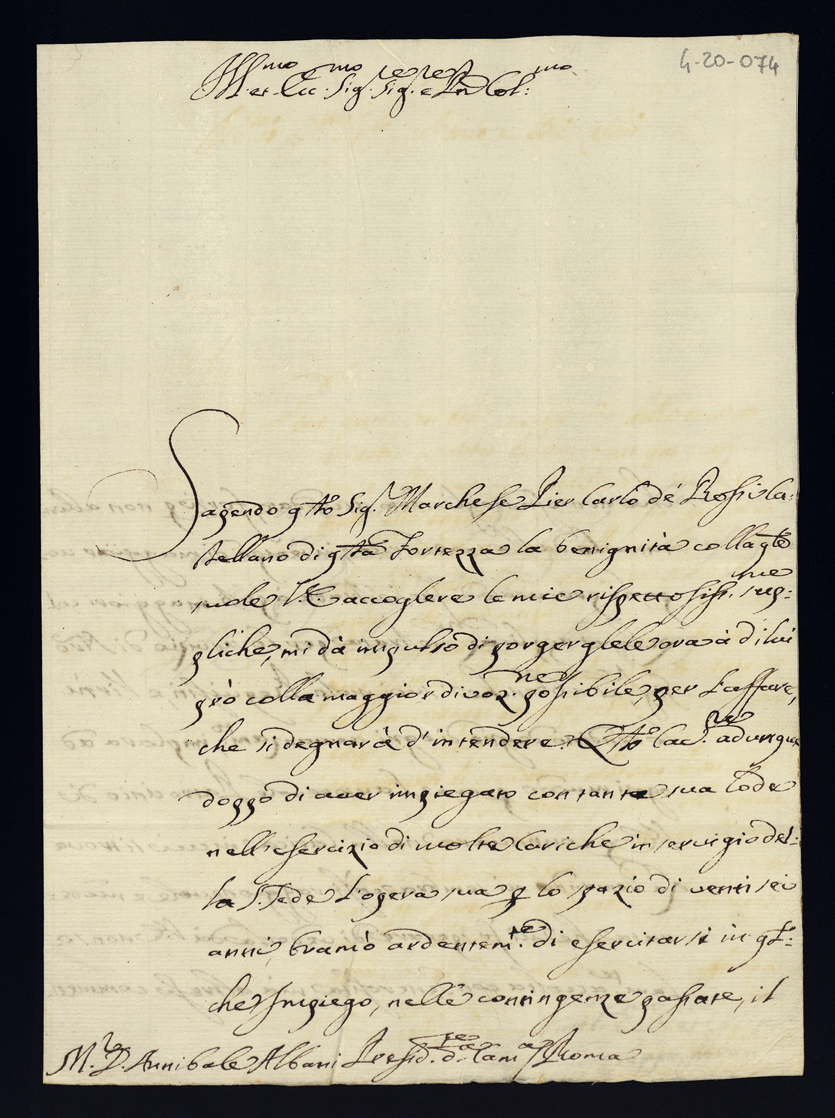 4-20-074
Ill.mo et Ecc.mo Sig.re Sig.re e Pn Col:mo
Sapendo q.sto Sig.r Marchese Pier Carlo de' Rossi Ca-
stellano di q.sta Fortezza la benignità colla q.le
suole V.E. accogliere le mie rispettosiss.me sup:
pliche, mi dà impulso di porgerglele ora à di lui
prò colla maggior divoz.ne possibile, per l'affare,
che si degnarà d'intendere. Q.sto Cav.re adunque
doppo di aver impiegato con tanta sua lode
nell'esercizio di molte Cariche in servigio del:
la S. Sede l'opera sua p lo spazio di venti sei
anni, bramò ardentem.te di esercitarsi in q.l:
che Impiego, nelle contingenze passate, il
M.r D. Annibale Albani Presid.te d.a Cam.a Roma